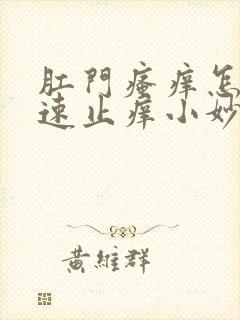 肛門瘙痒怎
速止痒小妙
黃維群